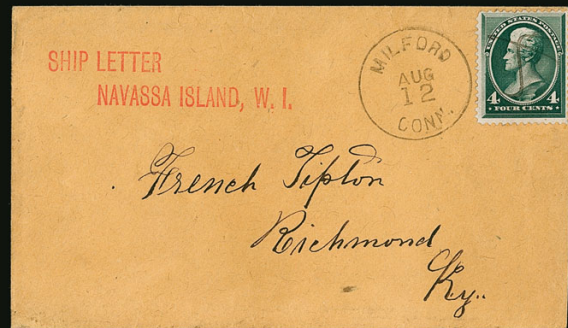 SHIP LETTER
NAVASSA ISLAND, W. I.
MILFORD
AUG
12
CONN.
UNITED STATES POSTAGE
4 4
FOUR CENTS
French Tipton
Richmond
Ky.